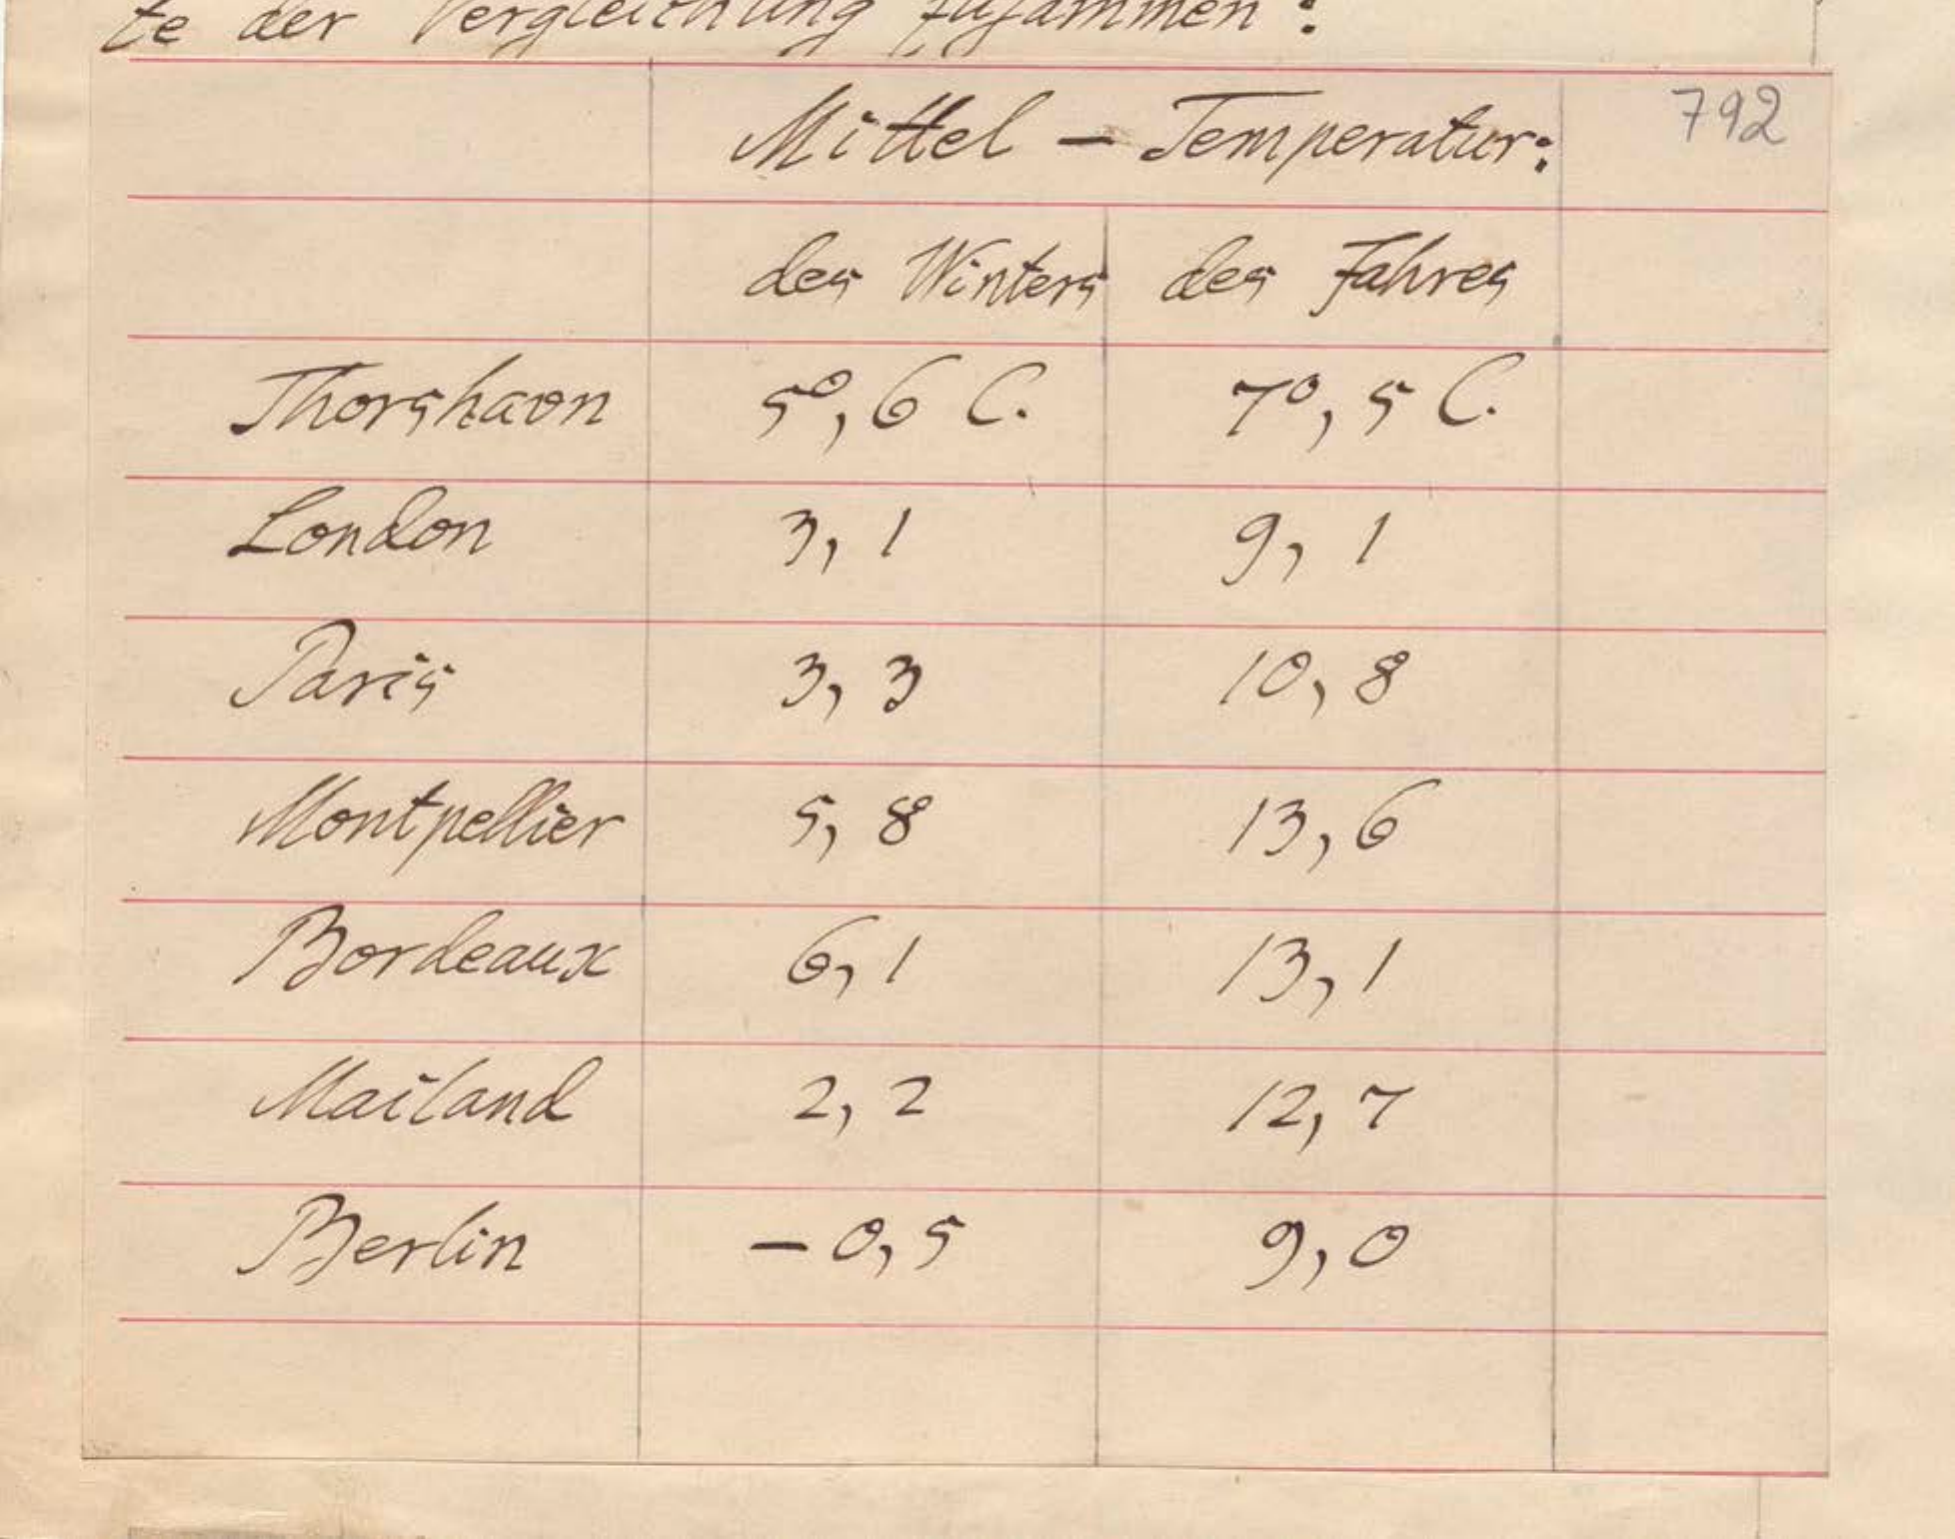 te der Vergleichung zusammen:
792
Mittel – Temperatur:
des Winters des Jahres
Thorshavn 5°,6 C. 7°,5 C.
London 3,1 9,1
Paris 3,3 10,8
Montpellier 5,8 13,6
Bordeaux 6,1 13,1
Mailand 2,2 12,7
Berlin –0,5 9,0